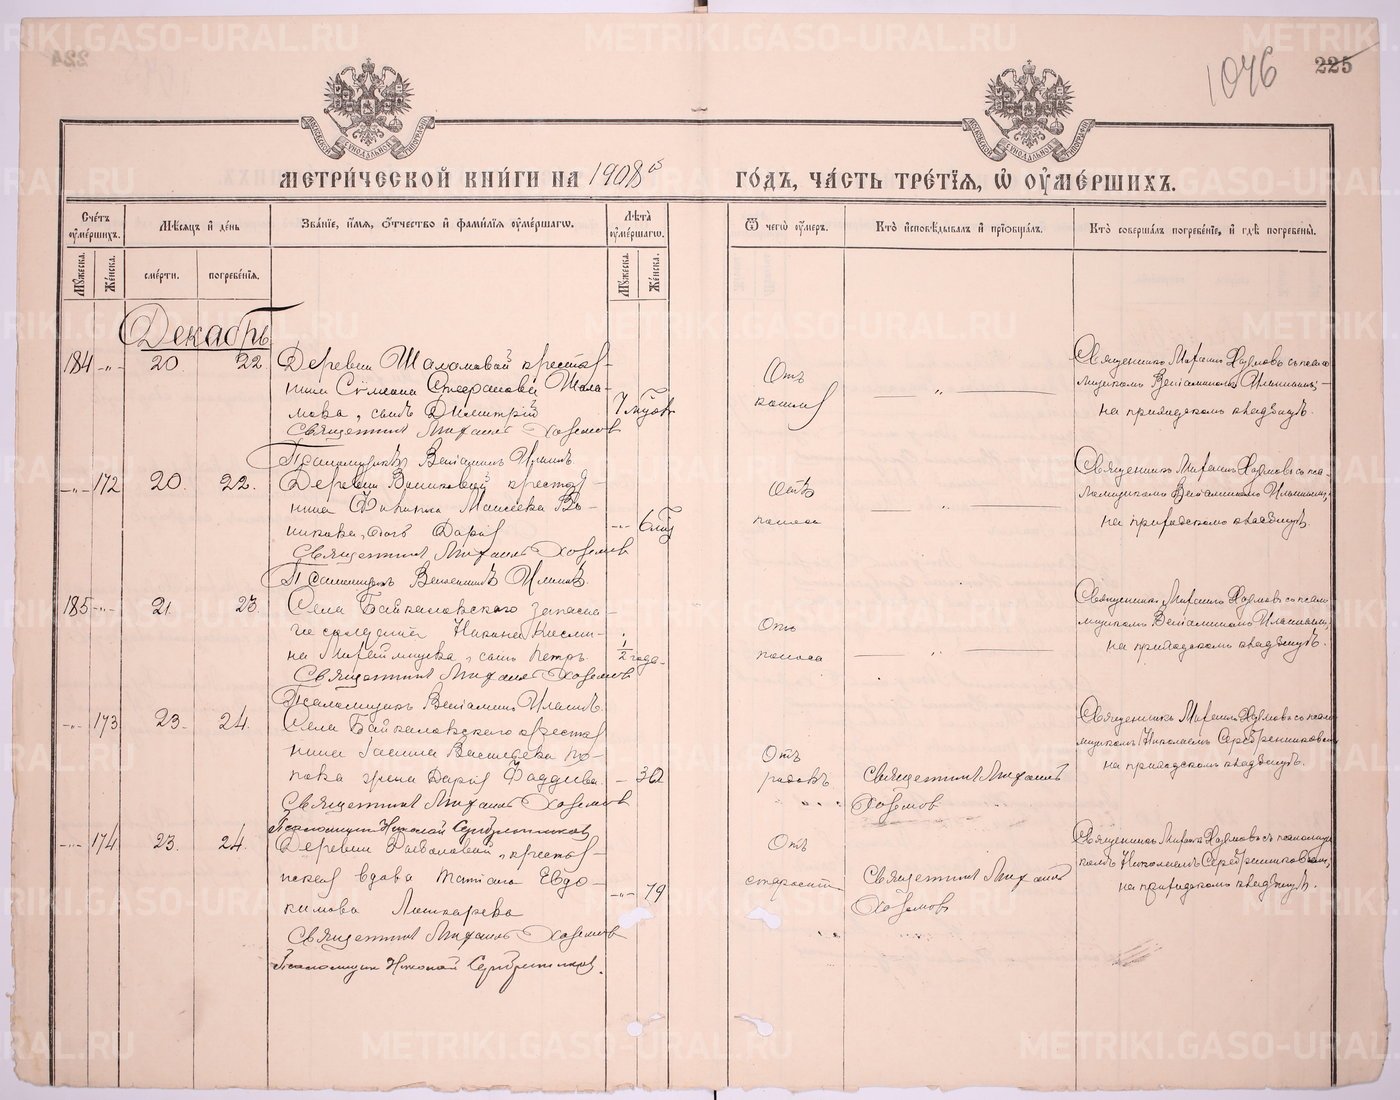 1046 225
МЕТРИ́ЧЕСКОЙ КНИ́ГИ НА 1908й ГО́ДЪ, ЧА́СТЬ ТРЕ́ТІЯ, Ѽ ОУМЕ́РШИХЪ.
Сче́тъ оуме́ршихъ.
Мѣ́сяцъ и де́нь
Зва́ніе, и́мя, о́тчество и фами́лія оуме́ршагѡ.
Лѣ́та оуме́ршагѡ.
Ѿ чегѡ̀ оу́меръ.
Кто̀ и҆сповѣ́дывалъ и прїѡбща́лъ.
Кто̀ соверша́лъ погребе́ніе, и гдѣ̀ погребены̀.
Мꙋ́жеска.
Же́нска.
сме́рти.
погребе́нія.
Мꙋ́жеска.
Же́нска.
Декабрь
184 -„- 20. 22. Деревни Шаламовой крестья-
нина Симеона Стефанова Шала-
мова, сынъ Димитрій
Священникъ Михаилъ Хохловъ
Псаломщикъ Веніаминъ Ильинъ
Отъ кашля
Священникъ Михаилъ Хохловъ съ псало-
мщикомъ Веніаминомъ Ильинымъ,
на приходскомъ кладбищѣ.
-„- 172 20. 22. Деревни крестья-
нина
дочь Дарія
-„- 6
Священникъ Михаилъ Хохловъ
Псаломщикъ Веніаминъ Ильинъ
Отъ поноса
Священникъ Михаилъ Хохловъ съ пса-
ломщикомъ Веніаминомъ Ильинымъ,
на приходскомъ кладбищѣ
185 -„- 21. 23. Села Байкаловскаго запасна-
го
сынъ Петръ.
1/2 года
Священникъ Михаилъ Хохловъ
Псаломщикъ Веніаминъ Ильинъ
Отъ поноса
Священникъ Михаилъ Хохловъ съ псало-
мщикомъ Веніаминомъ Ильинымъ,
на приходскомъ кладбищѣ.
-„- 173 23. 24. Села Байкаловскаго крестья-
нина Васильева По-
пова жена Дарія Фаддеева
- 30
Священникъ Михаилъ Хохловъ
Псаломщикъ Николай Серебренниковъ
Отъ родовъ
Священникъ Михаилъ
Хохловъ
Священникъ Михаилъ Хохловъ съ псало-
мщикомъ Николаемъ Серебренниковымъ
на приходскомъ кладбищѣ.
-„- 174 23. 24. Деревни крестья-
нская вдова Татіана Евдо-
кимова
-„- 79
Священникъ Михаилъ Хохловъ
Псаломщикъ Николай Серебренниковъ.
Отъ старости
Священникъ Михаилъ
Хохловъ
Священникъ Михаилъ Хохловъ съ псаломщи-
комъ Николаемъ Серебренниковымъ,
на приходскомъ кладбищѣ.
METRIKI.GASO-URAL.RU